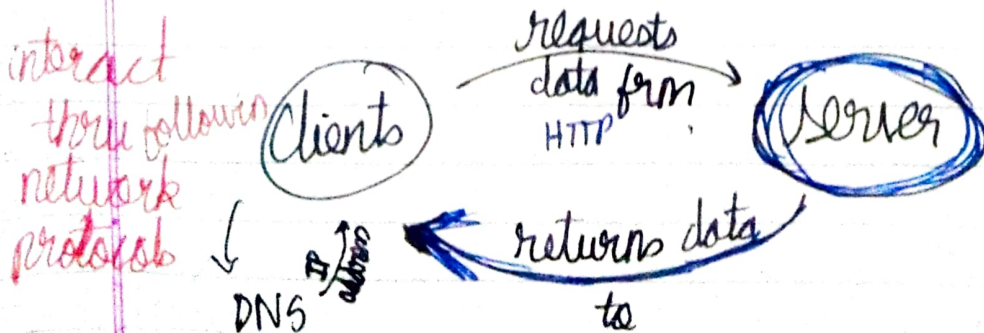 interact
thru followin
network
protocols
Clients
requests
data from
HTTP
Server
returns data
to
DNS
IP
address